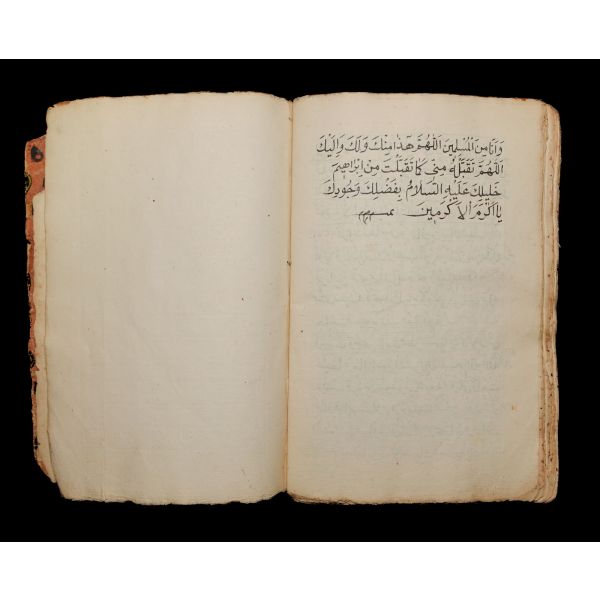 وَاَنَا مِنَ الْمُسْلِمِينَ اَللّٰهُمَّ هٰذَا مِنْكَ وَلَكَ وَاِلَيْكَ
اَللّٰهُمَّ تَقَبَّلْهُ مِنّٖى كَمَا تَقَبَّلْتَ مِنْ اِبْرٰاهِيمَ
خَلِيلِكَ عَلَيْهِ السَّلَامُ بِفَضْلِكَ وَجُودِكَ
يَا اَكْرَمَ الْاَكْرَمِينَ